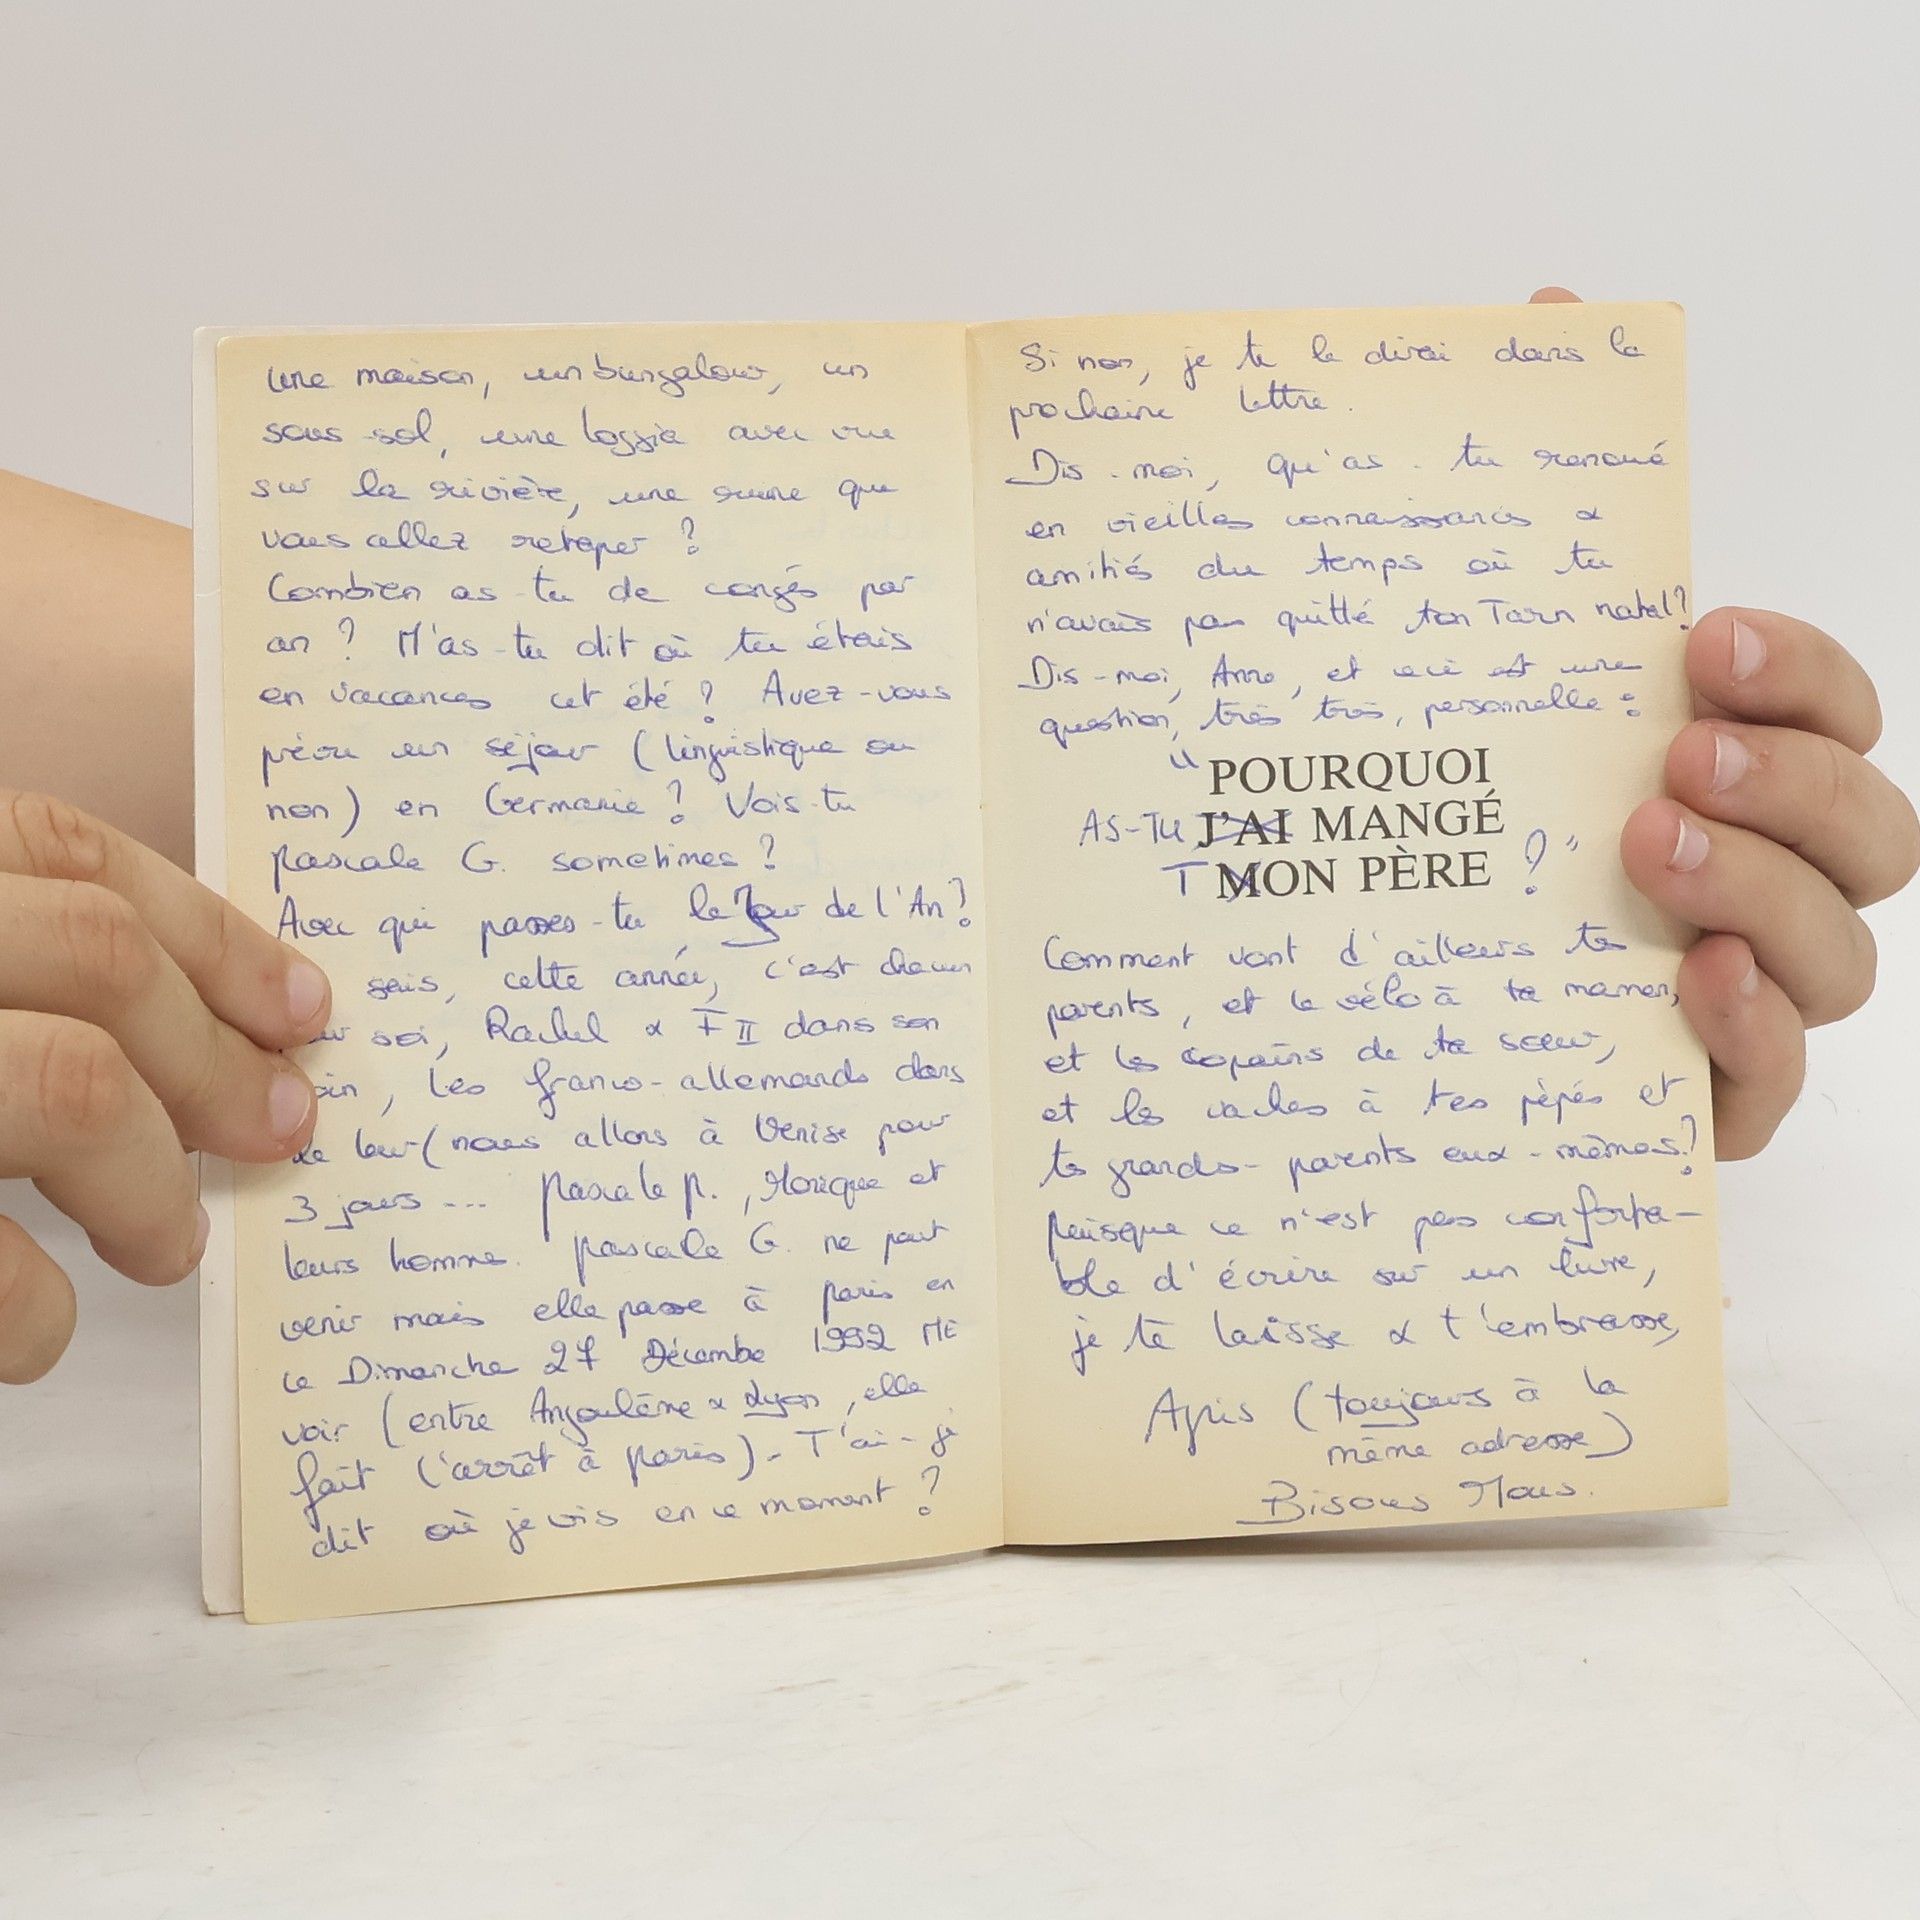 une maison, un bungalow, un
sous-sol, une loggia avec vue
sur la rivière, une ruine que
vous allez retaper ?
Combien as-tu de congés par
an ? M'as-tu dit où tu étais
en vacances cet été ? Avez-vous
prévu un séjour (linguistique ou
non) en Germanie ? Vois-tu
Pascale G. sometimes ?
Avec qui passes-tu le Jour de l'An ?
sais, cette année, c'est chacun
soi, Rachel & F II dans son
, les franco-allemands dans
le leur (nous allons à Venise pour
3 jours ... Pascale P., Monique et
leurs homme. Pascale G. ne peut
venir mais elle passe à Paris en
ce Dimanche 27 Décembre 1992 ME
voir (entre Angoulême & Lyon, elle
fait l'arrêt à Paris). T'ai-je
dit où je vis en ce moment ?
Si non, je te le dirai dans la
prochaine lettre.
Dis-moi, qu'as-tu renoué
en vieilles connaissances &
amitiés du temps où tu
n'avais pas quitté ton Tarn natal ?
Dis-moi, Anne, et ceci est une
question, très très, personnelle :
"POURQUOI
AS-TU J'AI MANGÉ
T MON PÈRE ?"
Comment vont d'ailleurs tes
parents, et le vélo à ta maman,
et les copains de ta sœur,
et les vaches à tes pépés et
tes grands-parents eux-mêmes ?
Puisque ce n'est pas conforta-
ble d'écrire sur un livre,
je te laisse & t'embrasse,
Agnis (toujours à la
même adresse)
Bisous Mous.